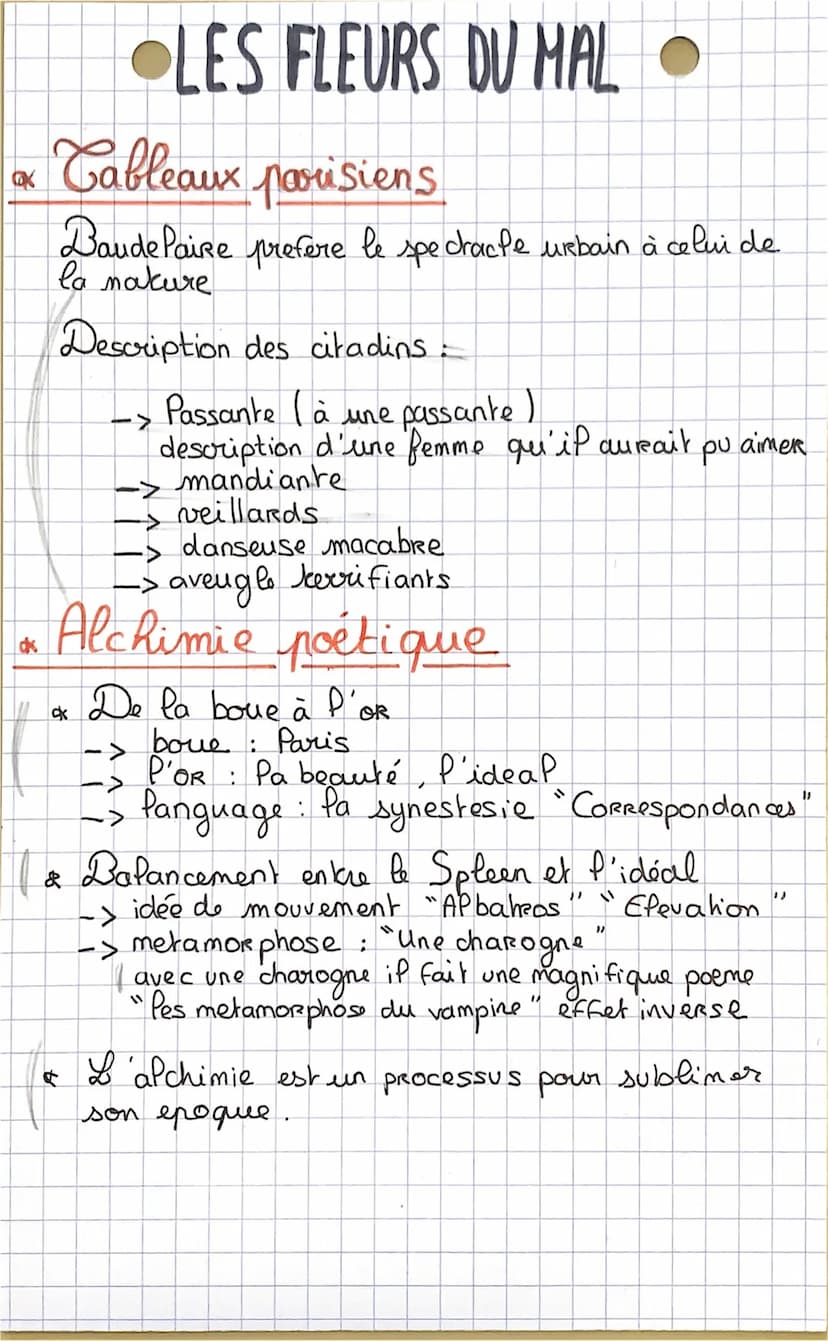 LES FLEURS DU MAL
Tableaux parisiens
Baudelaire prefere le spectracle urbain à celui de
la nature
Description des citadins :
-> Passante ( à une passante )
description d'une femme qu'il aurait pu aimer
-> mandiante
-> veillards
-> danseuse macabre
-> aveugle terrifiants
Alchimie poétique
De la boue à l'or
-> boue : Paris
-> l'or : la beauté, l'ideal
-> language : la synestesie "Correspondances"
Balancement entre le Spleen et l'idéal
-> idée de mouvement "Albatros" "Elevation"
-> metamorphose : "Une charogne"
avec une charogne il fait une magnifique poeme
"les metamorphose du vampire" effet inverse
L'alchimie est un processus pour sublimer
son epoque.